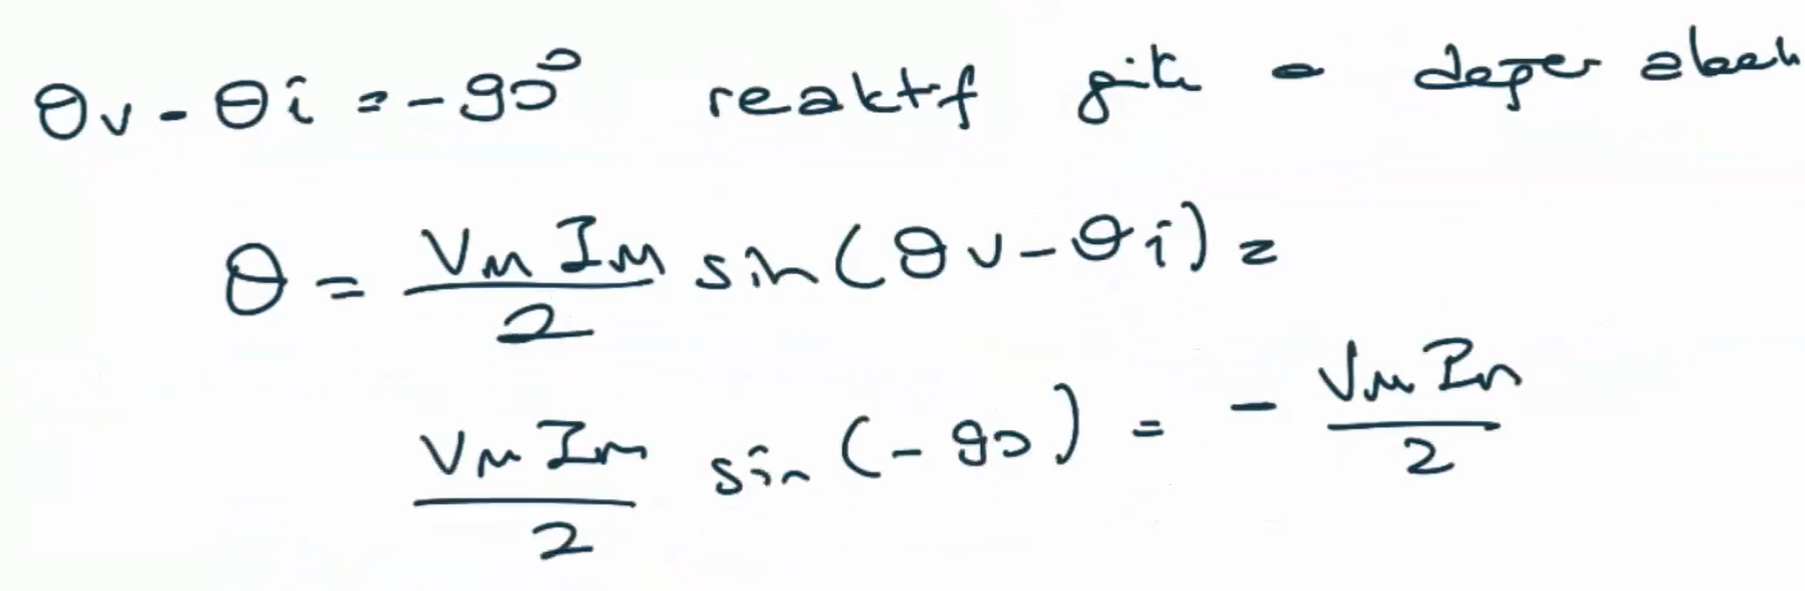 θv - θi = -90° reaktif güç - değer alacak
θ = VM IM / 2 sin(θv - θi) =
VM Im / 2 sin(-90) = - VM Im / 2